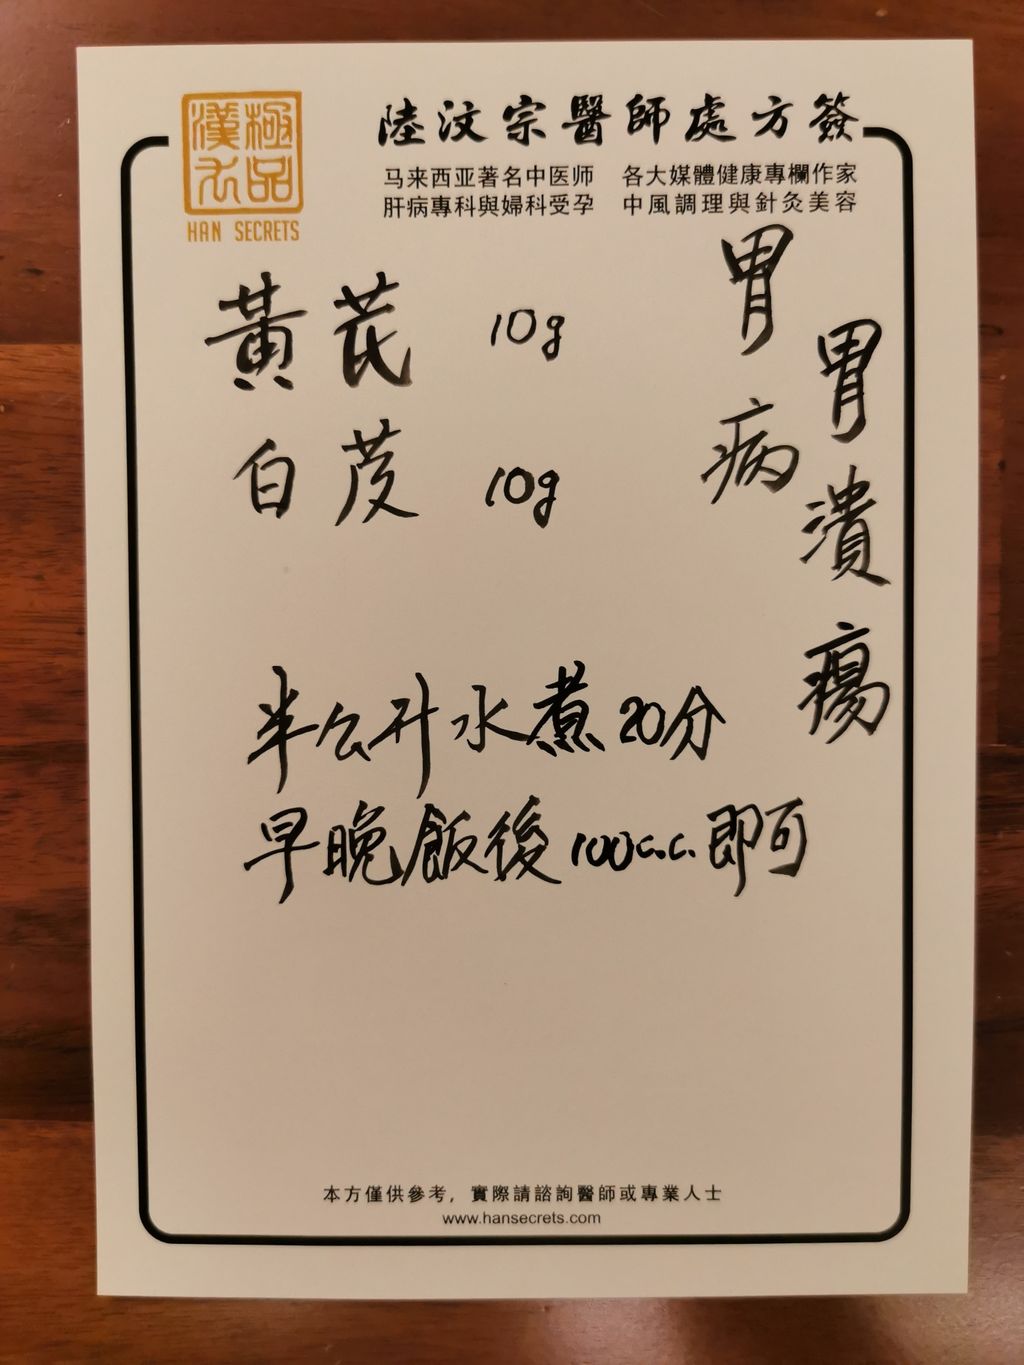 極品
漢方
HAN SECRETS
陸汶宗醫師處方簽
马来西亚著名中医师 各大媒體健康專欄作家
肝病專科與婦科受孕 中風調理與針灸美容
胃病
胃潰瘍
黃芪 10g
白芨 10g
半公升水煮20分
早晚飯後100c.c.即可
本方僅供參考，實際請諮詢醫師或專業人士
www.hansecrets.com